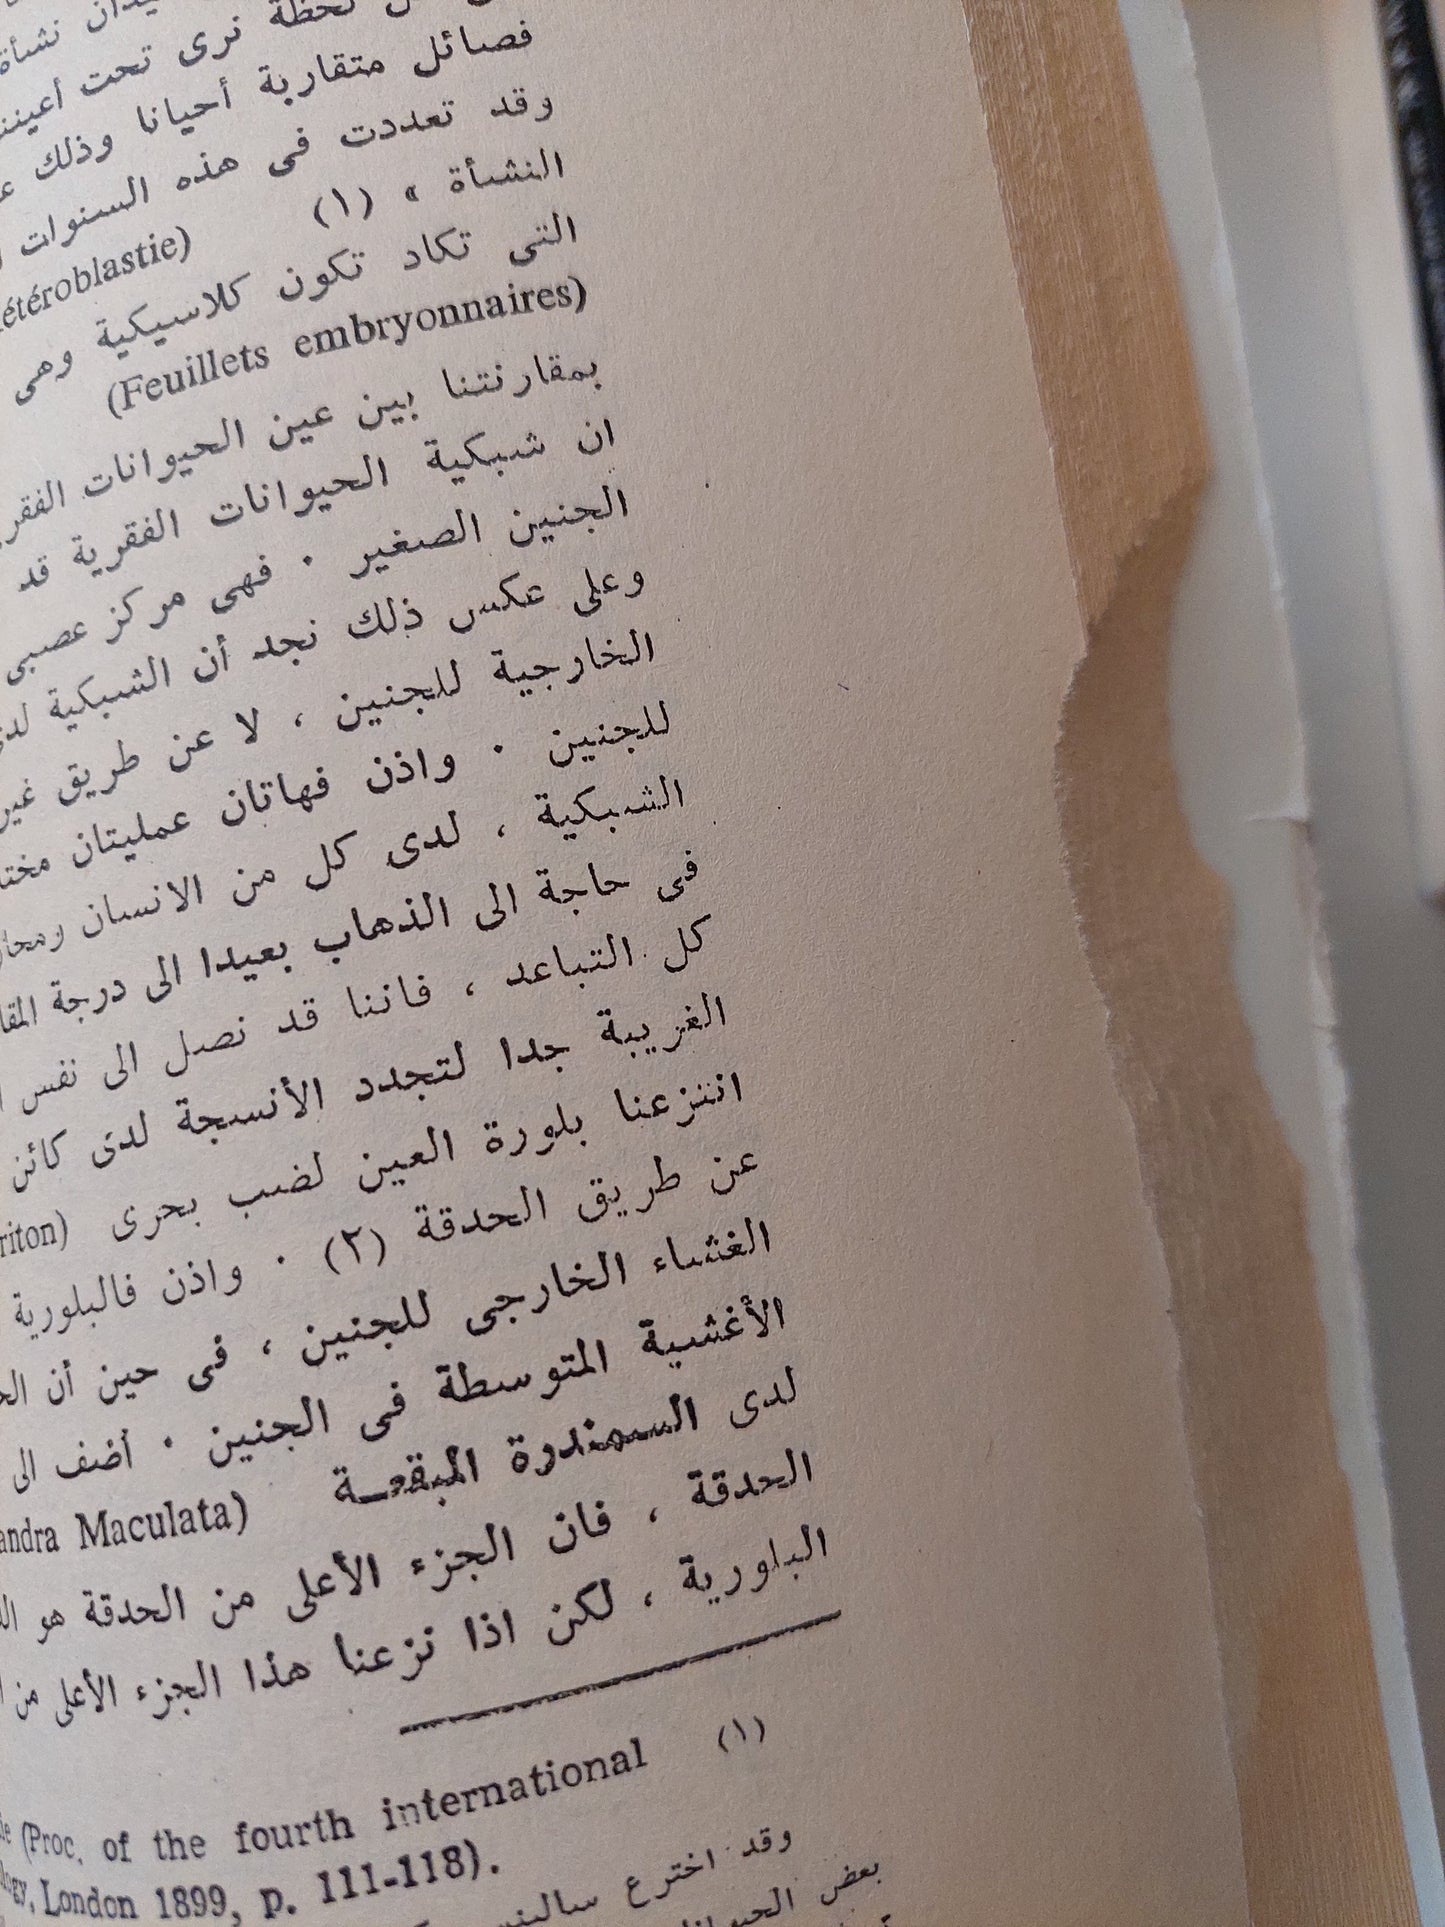 لحظة نرى تحت أعيننا
نشأة
فصائل متقاربة أحيانا وذلك
وقد تعددت فى هذه السنوات
النشأة » (١) (étéroblastie
التى تكاد تكون كلاسيكية وهى
(Feuillets embryonnaires)
بمقارنتنا بين عين الحيوانات
ان شبكية الحيوانات الفقرية قد
الجنين الصغير . فهى مركز عصبى
وعلى عكس ذلك نجد أن الشبكية
الخارجية للجنين ، لا عن طريق غير
للجنين . واذن فهاتان عمليتان
الشبكية ، لدى كل من الانسان
فى حاجة الى الذهاب بعيدا الى درجة
كل التباعد ، فاننا قد نصل الى نفس
الغريبة جدا لتجدد الأنسجة لدى كائن
انتزعنا بلورة العين لضب بحرى (riton
عن طريق الحدقة (٢) . واذن فالبلورية
الغشاء الخارجى للجنين ، فى حين أن
الأغشية المتوسطة فى الجنين . أضف الى
لدى السمندرة المبقعـة (andra Maculata
الحدقة ، فان الجزء الأعلى من الحدقة هو
البلورية ، لكن اذا نزعنا هذا الجزء الأعلى من
(١)
(Proc. of the fourth international
London 1899, p. 111-118).
وقد اخترع
بعض